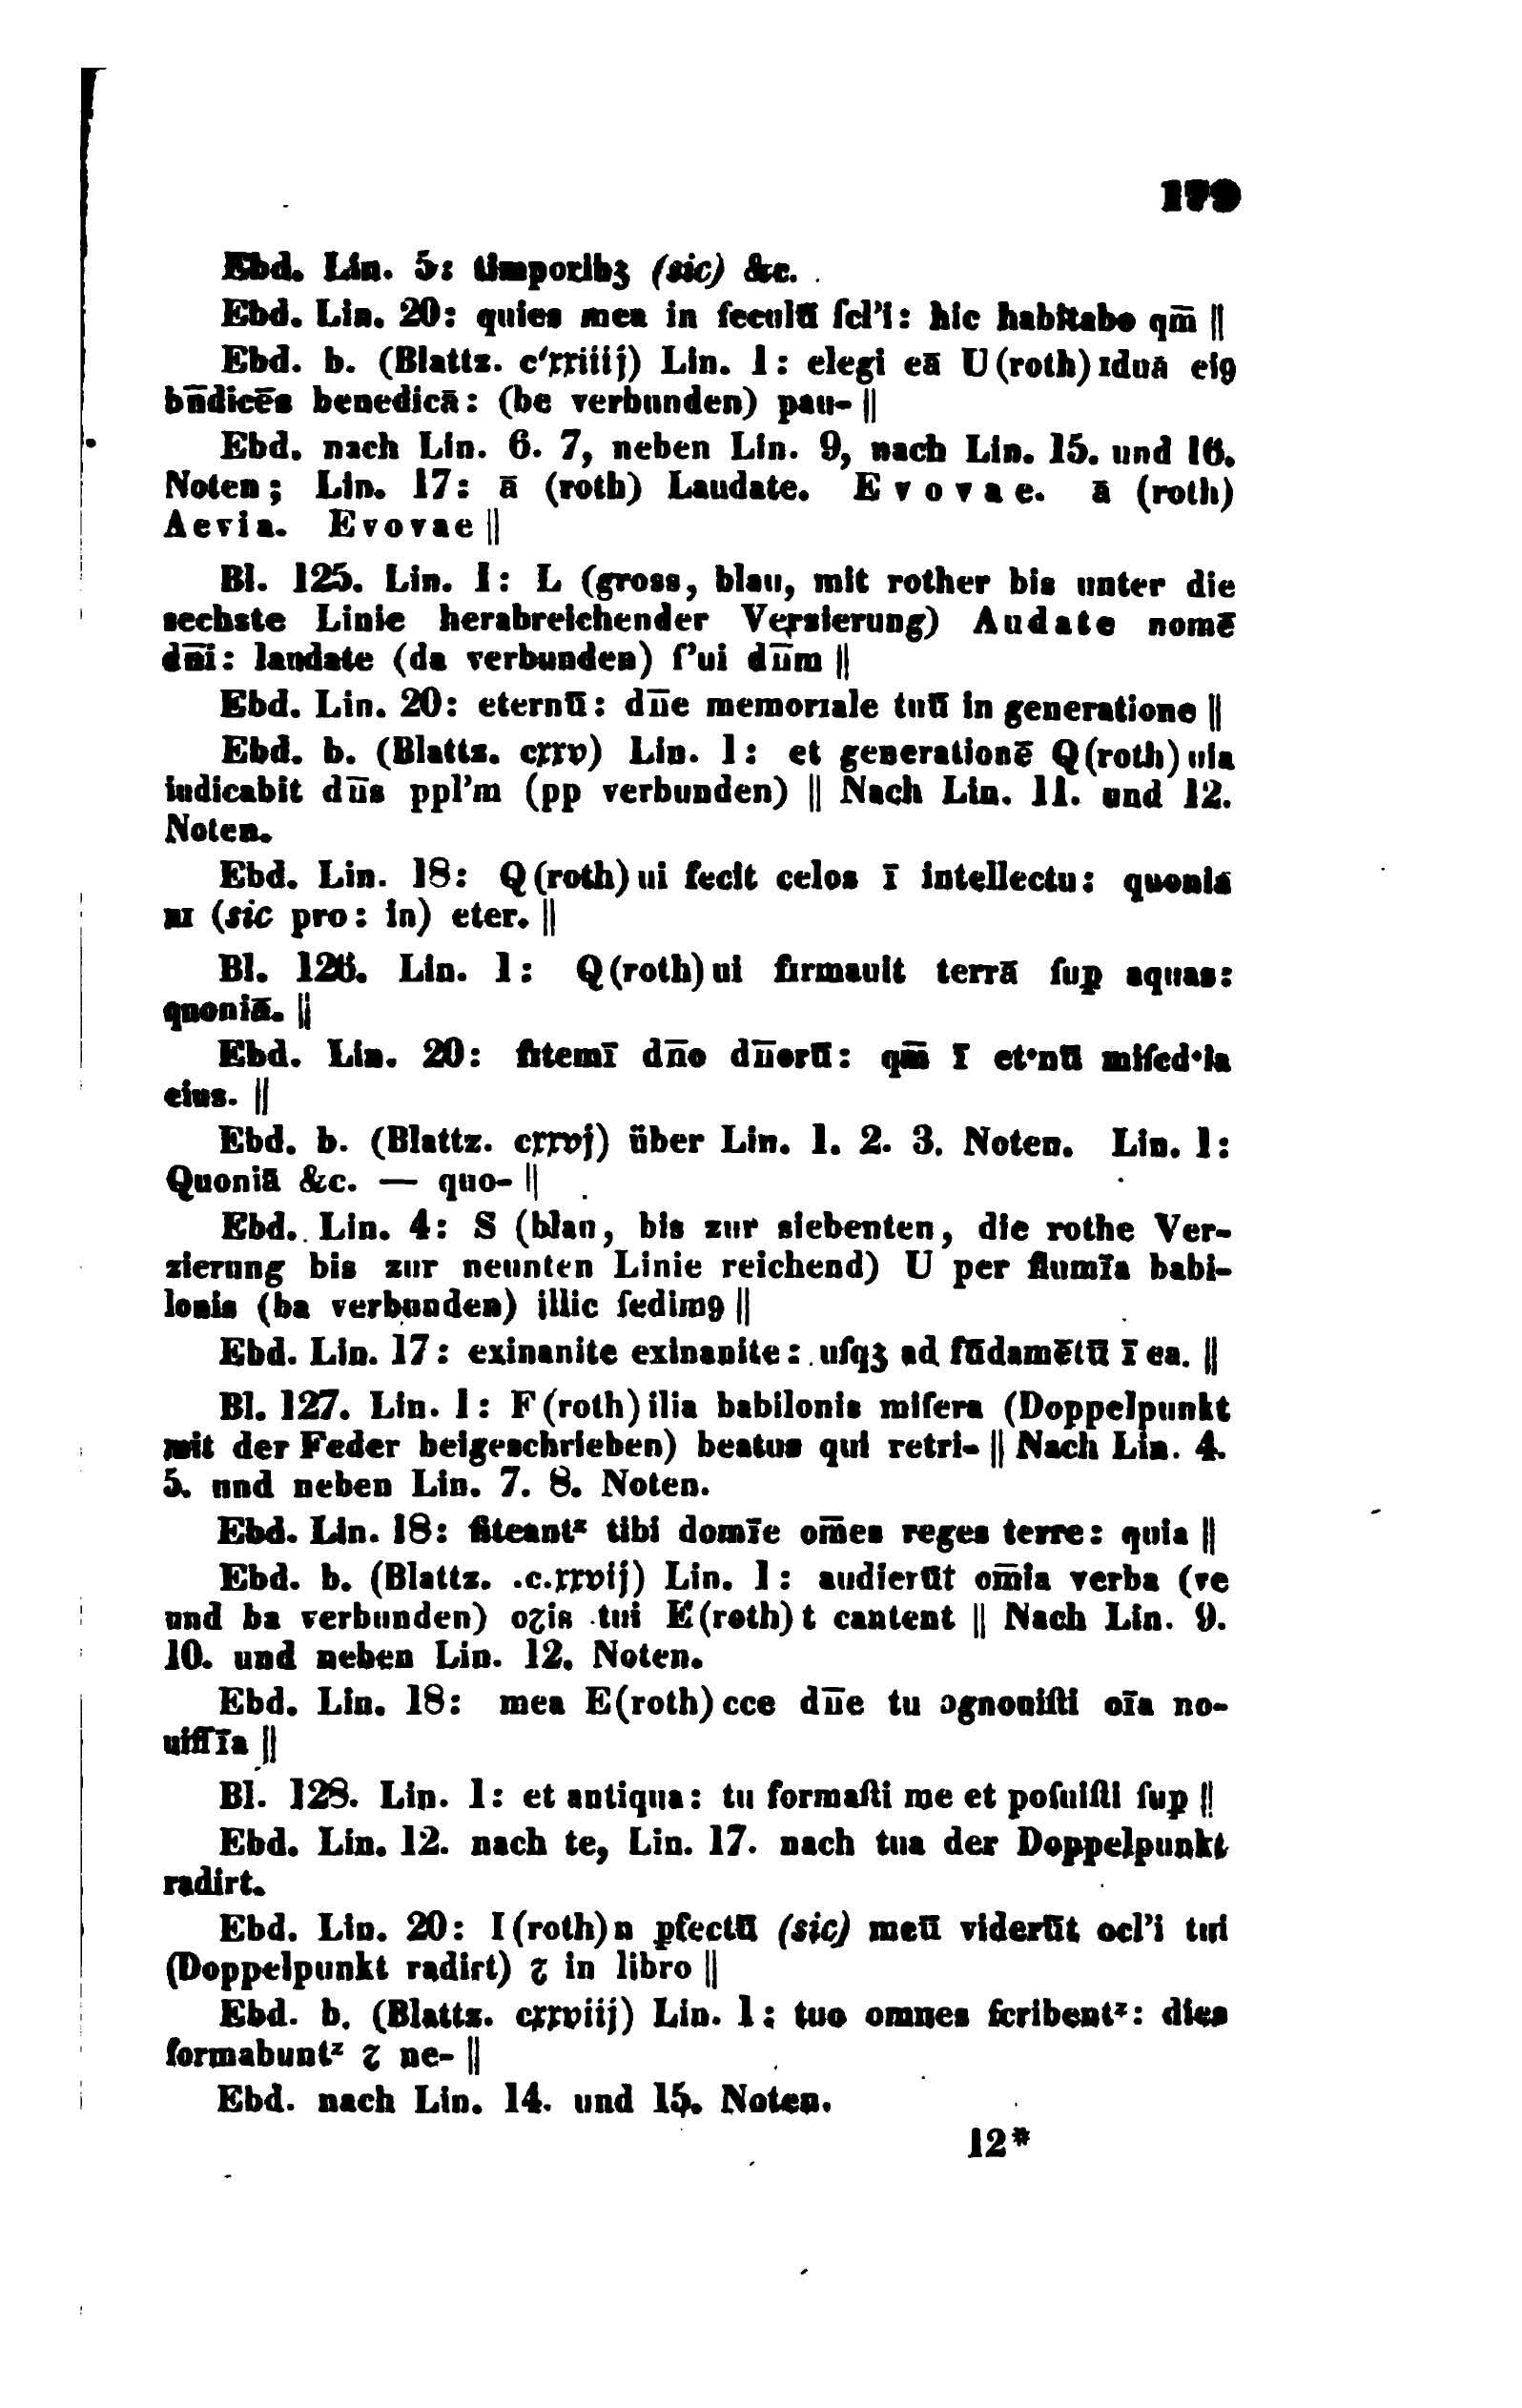 179
Ebd. Lin. 5: timporibʒ (sic) &c.
Ebd. Lin. 20: quies mea in ſeculū ſcl'i: hic habitabo qm̄ ||
Ebd. b. (Blattz. c'rriiij) Lin. 1: elegi eā U(roth)ıduā eiꝯ
bn̄dicēs benedicā: (be verbunden) pau- ||
Ebd. nach Lin. 6. 7, neben Lin. 9, nach Lin. 15. und 16.
Noten; Lin. 17: ā (roth) Laudate. Evovae. ā (roth)
Aevia. Evovae ||
Bl. 125. Lin. 1: L (gross, blau, mit rother bis unter die
sechste Linie herabreichender Verzierung) Audate nomē
dn̄i: laudate (da verbunden) ſ'ui dn̄m ||
Ebd. Lin. 20: eternū: dn̄e memorıale tuū in generatione ||
Ebd. b. (Blattz. cꝛꝛv) Lin. 1: et generationē Q(roth)uia
iudicabit dn̄s ppl'm (pp verbunden) || Nach Lin. 11. und 12.
Noten.
Ebd. Lin. 18: Q(roth)ui fecit celos ī intellectu: quoniā
nı (sic pro: in) eter. ||
Bl. 126. Lin. 1: Q(roth)ui fırmauit terrā ſuꝑ aquas:
quoniā. ||
Ebd. Lin. 20: fitemī dn̄o dn̄orū: qm̄ ī et'nū miſcd'ia
eius. ||
Ebd. b. (Blattz. cꝛꝛvj) über Lin. 1. 2. 3. Noten. Lin. 1:
Quoniā &c. — quo- ||
Ebd. Lin. 4: S (blau, bis zur siebenten, die rothe Ver-
zierung bis zur neunten Linie reichend) U per flumīa babi-
lonis (ba verbunden) illic ſedimꝯ ||
Ebd. Lin. 17: exinanite exinanite: uſqʒ ad fūdamētū ī ea. ||
Bl. 127. Lin. 1: F(roth)ilia babilonis miſera (Doppelpunkt
mit der Feder beigeschrieben) beatus qui retri- || Nach Lin. 4.
5. und neben Lin. 7. 8. Noten.
Ebd. Lin. 18: fiteantᶻ tibi domīe om̄es reges terre: quia ||
Ebd. b. (Blattz. .c.ꝛꝛvij) Lin. 1: audierūt om̄ia verba (ve
und ba verbunden) oꝛis tui E(roth)t cantent || Nach Lin. 9.
10. und neben Lin. 12. Noten.
Ebd. Lin. 18: mea E(roth)cce dn̄e tu ɔgnouiſti oīa no-
uiſſīa ||
Bl. 128. Lin. 1: et antiqua: tu formaſti me et poſuiſti ſuꝑ ||
Ebd. Lin. 12. nach te, Lin. 17. nach tua der Doppelpunkt
radirt.
Ebd. Lin. 20: I(roth)n ꝑfectū (sic) meū viderūt ocl'i tui
(Doppelpunkt radirt) ⁊ in libro ||
Ebd. b. (Blattz. cꝛꝛviij) Lin. 1: tuo omnes ſcribentᶻ: dies
formabuntᶻ ⁊ ne- ||
Ebd. nach Lin. 14. und 15. Noten.
12*